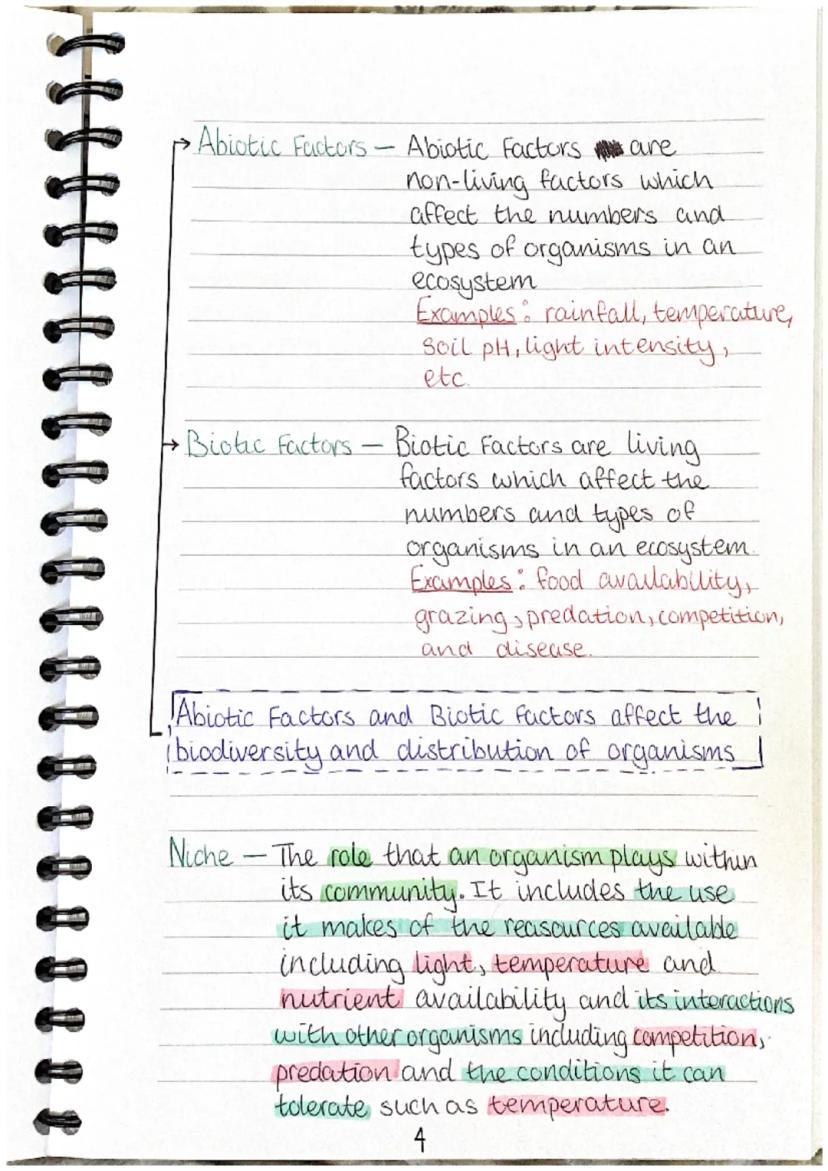 Abiotic Factors — Abiotic Factors are
non-living factors which
affect the numbers and
types of organisms in an
ecosystem
Examples: rainfall, temperature,
soil pH, light intensity,
etc.
Biotic Factors — Biotic Factors are living
factors which affect the
numbers and types of
organisms in an ecosystem.
Examples: food availability,
grazing, predation, competition,
and disease.
Abiotic Factors and Biotic Factors affect the
biodiversity and distribution of organisms
Niche — The role that an organism plays within
its community. It includes the use
it makes of the reasources available
including light, temperature and
nutrient availability and its interactions
with other organisms including competition,
predation and the conditions it can
tolerate such as temperature.
4